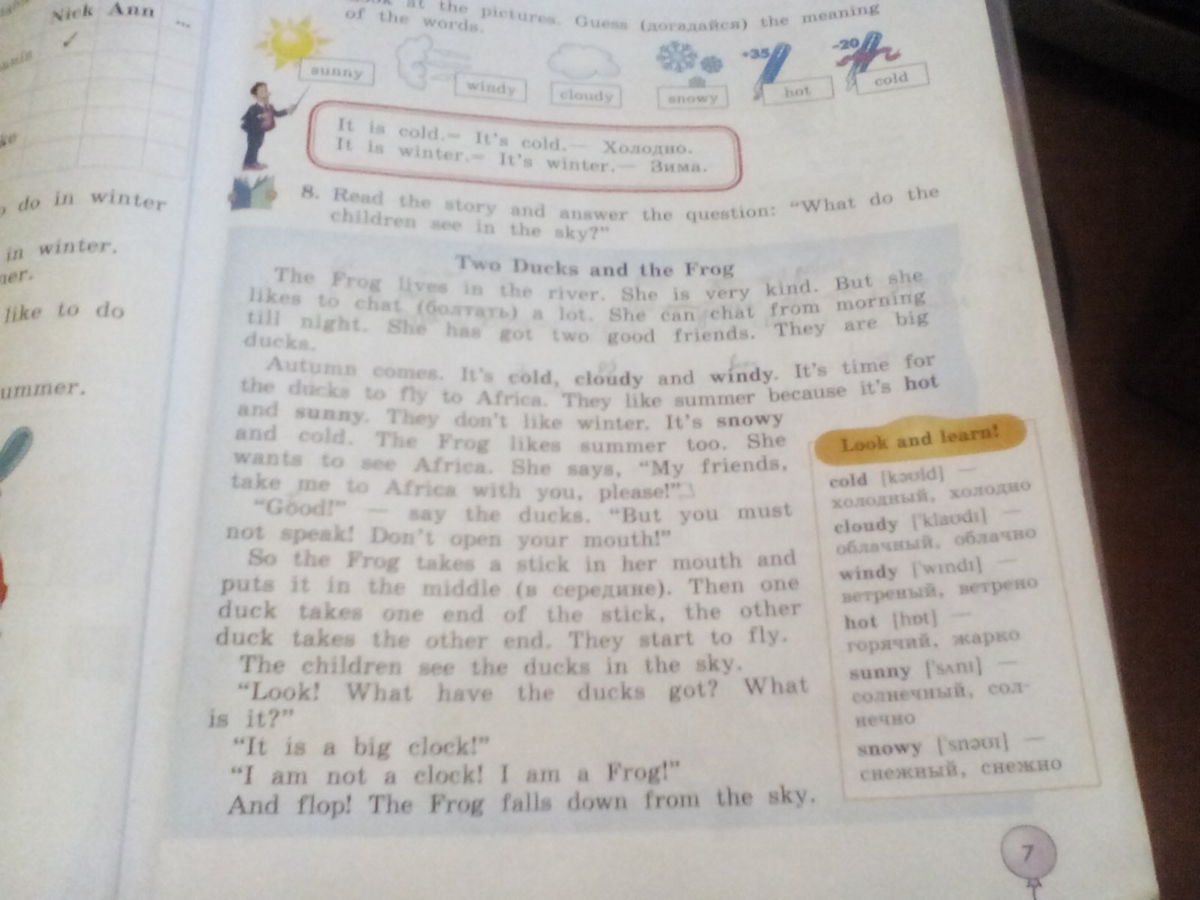 Nick Ann ...
do in winter
in winter.
like to do
at the pictures. Guess (догадайся) the meaning
of the words.
sunny
windy
cloudy
snowy
+35
hot
-20
cold
It is cold.— It's cold.— Холодно.
It is winter.— It's winter.— Зима.
8. Read the story and answer the question: “What do the
children see in the sky?”
Two Ducks and the Frog
The Frog lives in the river. She is very kind. But she
likes to chat (болтать) a lot. She can chat from morning
till night. She has got two good friends. They are big
ducks.
Autumn comes. It's cold, cloudy and windy. It's time for
the ducks to fly to Africa. They like summer because it's hot
and sunny. They don't like winter. It's snowy
and cold. The Frog likes summer too. She
wants to see Africa. She says, “My friends,
take me to Africa with you, please!”
“Good!” — say the ducks. “But you must
not speak! Don't open your mouth!”
So the Frog takes a stick in her mouth and
puts it in the middle (в середине). Then one
duck takes one end of the stick, the other
duck takes the other end. They start to fly.
The children see the ducks in the sky.
“Look! What have the ducks got? What
is it?”
“It is a big clock!”
“I am not a clock! I am a Frog!”
And flop! The Frog falls down from the sky.
Look and learn!
cold [kəʊld] —
холодный, холодно
cloudy ['klaʊdɪ] —
облачный, облачно
windy ['wɪndɪ] —
ветреный, ветрено
hot [hɒt] —
горячий, жарко
sunny ['sʌnɪ] —
солнечный, сол-
нечно
snowy ['snəʊɪ] —
снежный, снежно
7